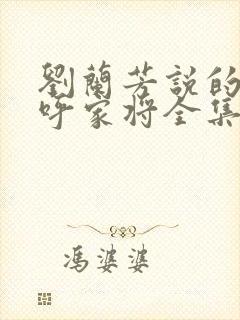 劉蘭芳説的
呼家將全集
馮婆婆